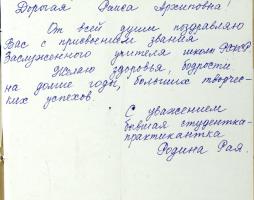 Дорогая Раиса Архиповна!
От всей души поздравляю
Вас с присвоением звания
Заслуженного учителя школы
Желаю здоровья, бодрости
на долгие годы, больших творчес-
ких успехов.
С уважением
бывшая студентка-
практикантка
Родина Рая.